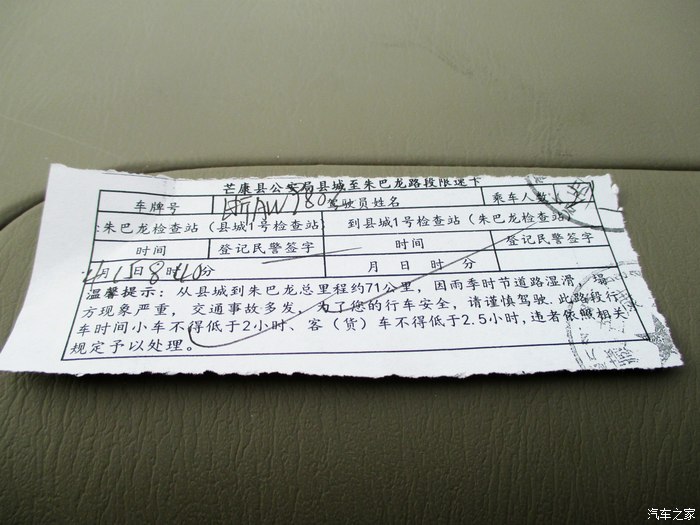 芒康县公安局县城至朱巴龙路段限速卡
车牌号 驾驶员姓名 乘车人数
:朱巴龙检查站（县城1号检查站） 到县城1号检查站（朱巴龙检查站）
时间 登记民警签字 时间 登记民警签字
月15日8时40分 月 日 时 分
温馨提示：从县城到朱巴龙总里程约71公里，因雨季时节道路湿滑、塌
方现象严重，交通事故多发，为了您的行车安全，请谨慎驾驶。此路段行
车时间小车不得低于2小时、客（货）车不得低于2.5小时,违者依照相关
规定予以处理。
汽车之家